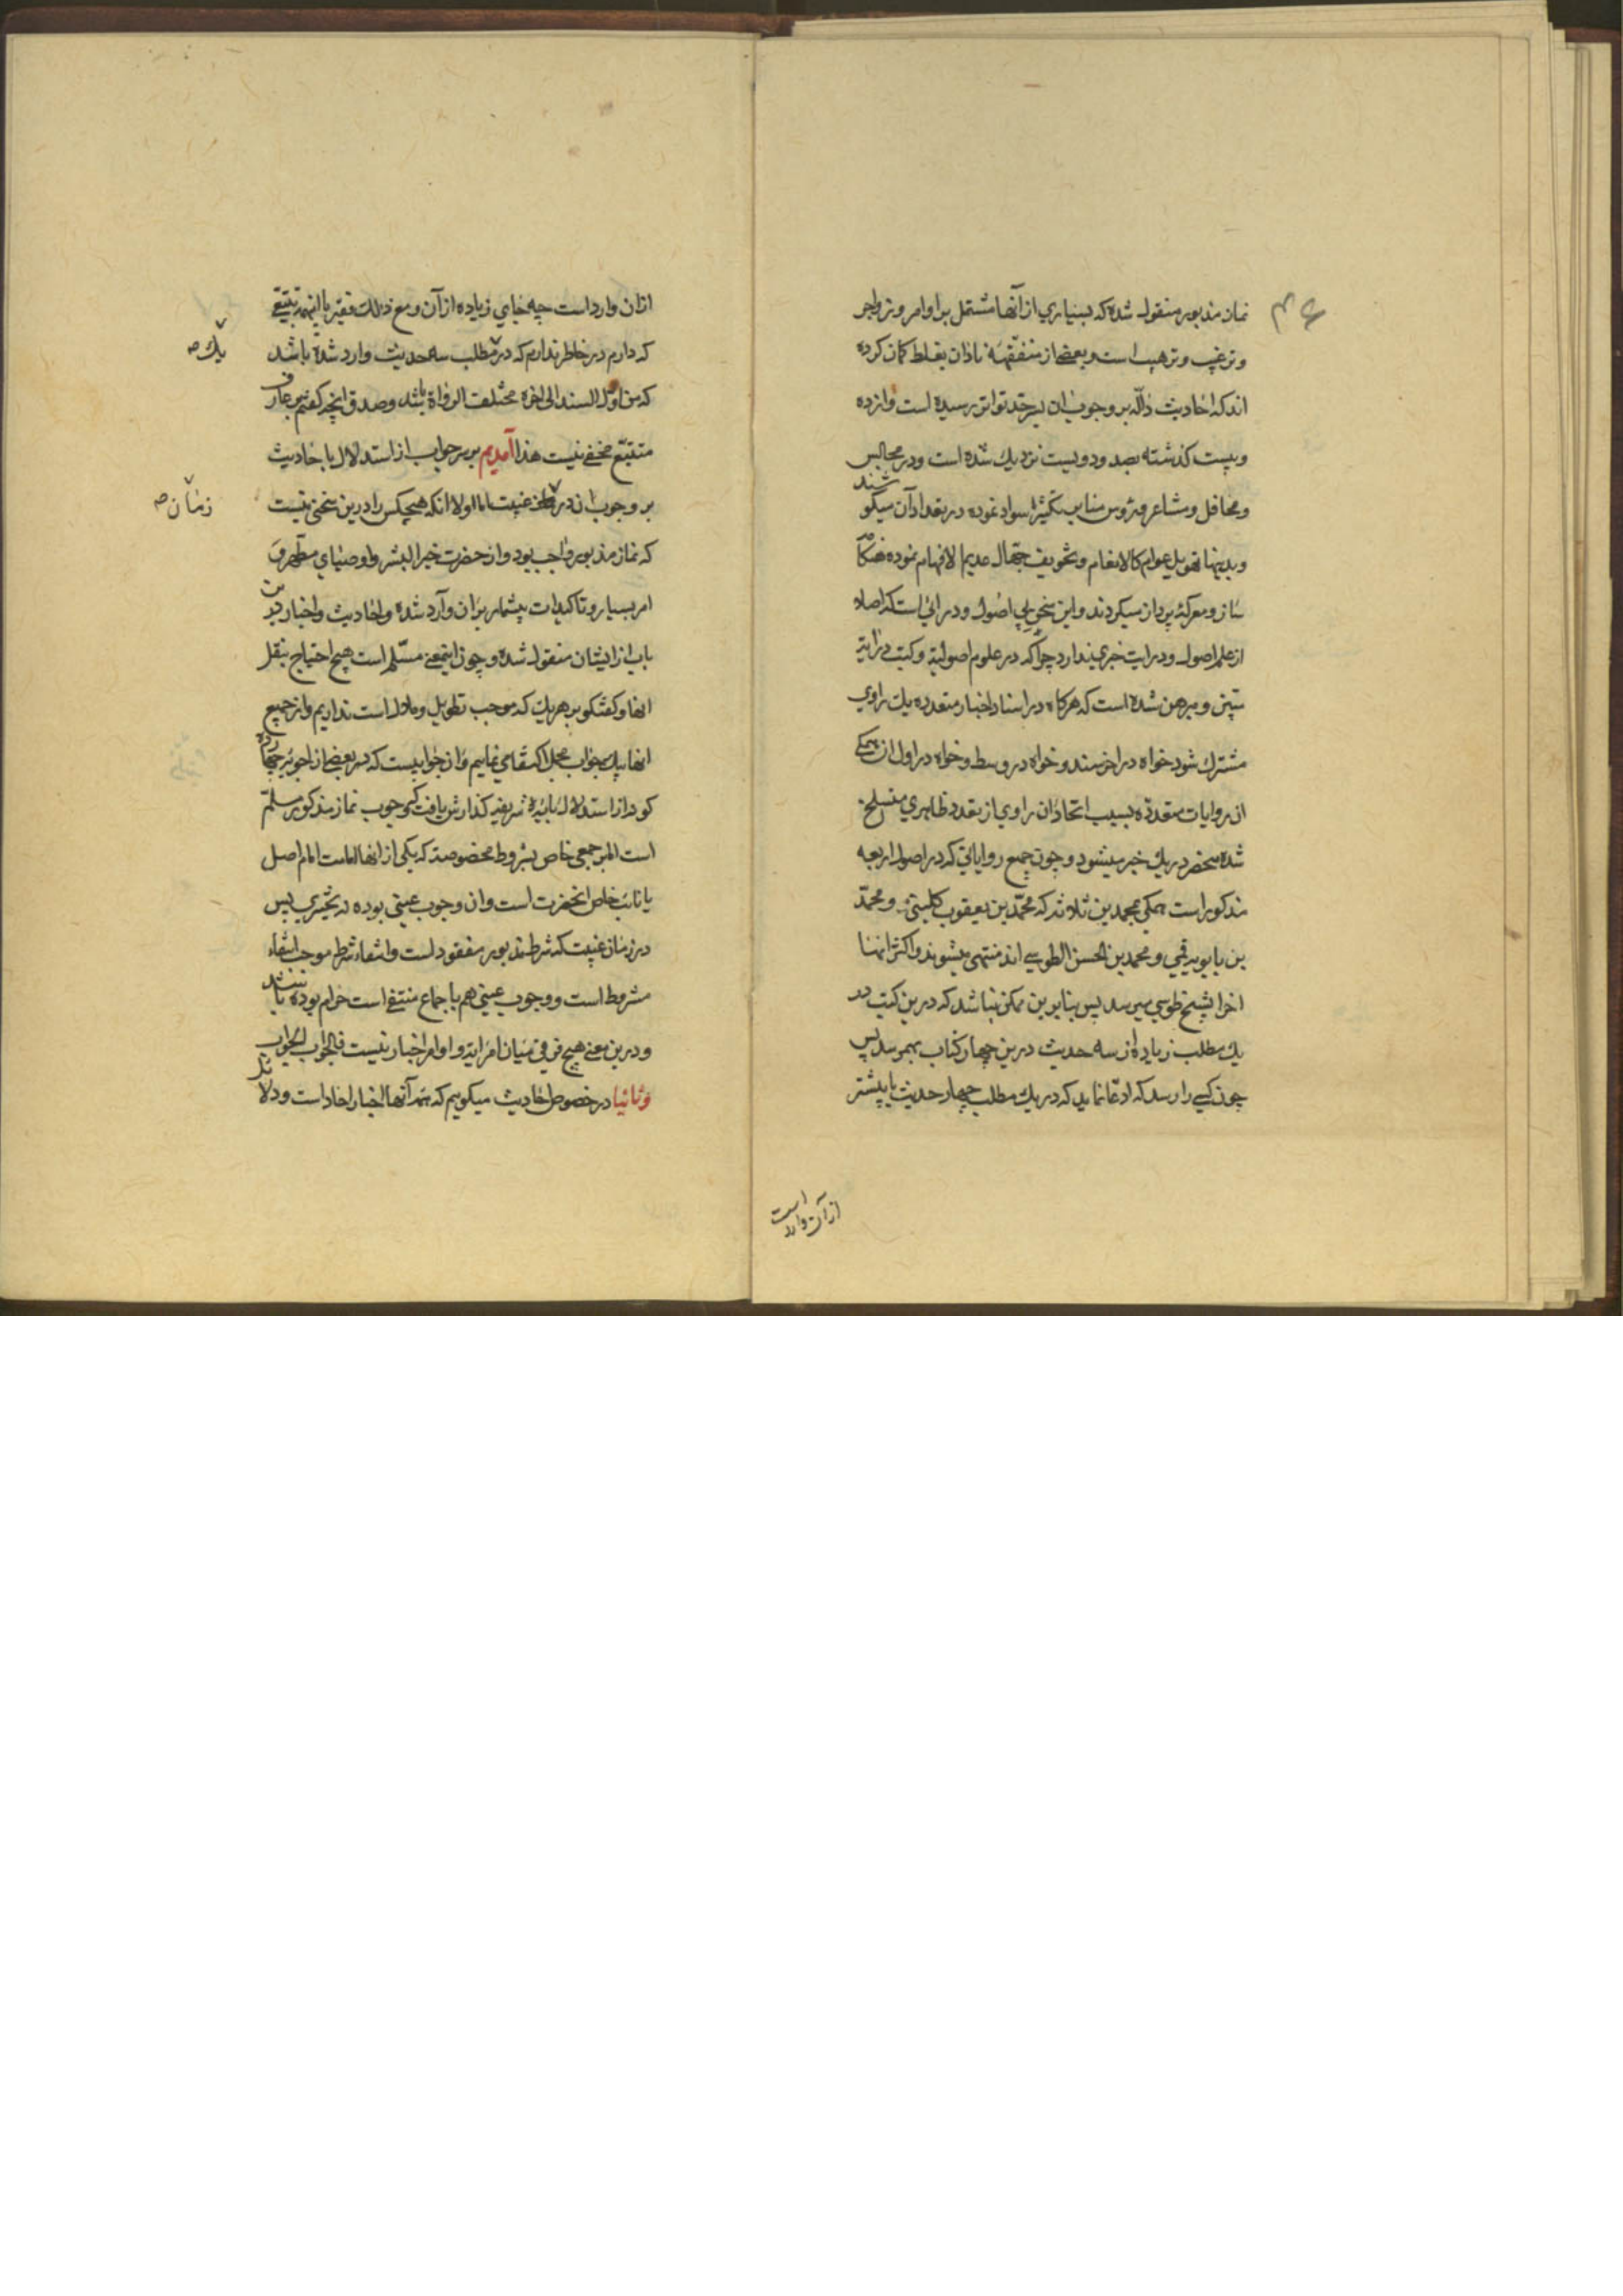 نماز مذبور منقول شده که بسیاري از آنها مشتمل بر اوامر و زواجر
و ترغیب و ترهیب است و بعضے از متفقهه نادان بغلط کمان کرده
اند که احادیث دالّه بر وجوب ان بسرحد تواتر رسیده است و از ده
و بیست کذشته بصد و دویست نزدیك شده است و در مجالس
و محافل و مشاعر و رؤس منابر تکثیر سواد نموده در تعداد آن میکو
شند
و بدینها تهویل عوام کالانعام و تخویف جهّال عدیم الافهام نموده هنکامه
ساز و معرکه پرداز میکردند و این سخن بی اصول و درائی است که اصلا
از علم اصول و درایت خبري ندارد چرا که در علوم اصولیّه و کتب درایة
مبیّن و مبرهن شده است که هرکاه در اسناد اخبار متعدده یك راوي
مشترك شود خواه در اخر سند و خواه در وسط و خواه در اول ان همکے
ان روایات متعدّده بسبب اتحاد ان راوي از تعدد ظاهري منسلخ
شده منحصر در یك خبر میشود و چون جمیع روایاتی که در اصول اربعه
مذکور است همکی بمحمدین ثلاثه که محمّد بن یعقوب کلینی و محمّد
بن بابویه قمی و محمد بن الحسن الطوسے اند منتهی میشوند و اکثر انها
اخر بشیخ طوسي میرسد پس بنابرین ممکن نباشد که درین کتب در
یك مطلب زیاده از سه حدیث درین چهار کتاب بهم رسد پس
چون کسی را رسد که ادّعا نماید که در یك مطلب چهار حدیث یا بیشتر
از آن وارد است
ازان وارد است چه جاي زیاده از آن و مع ذلك فقیر با اینهمه تتبّعے
که دارم در خاطر ندارم که در مطلب سه حدیث وارد شده باشد
یك صح
که من اوّل السند الی اخره مختلف الرواة باشد و صدق انچه کفتیم بر عارف
متتبّع مخفے نیست هذا آمدیم بر سر جواب از استدلال باحادیث
بر وجوب ان در غیبت اما اولا انکه هیچکس را درین سخنی نیست
زمان صح
که نماز مذبور واجب بود و از حضرت خیر البشر و اوصیاي مطهرهٔ
امر بسیار و تاکیدات بیشمار بران وارد شده و احادیث و اخبار درین
باب از ایشان منقول شده و چون اینمعنے مسلّم است هیچ احتیاج بنقل
انها و کفتکو بر هریك که موجب تطویل و ملال است نداریم و از جمیع
انها بیك جواب مجمل اکتفا می نماییم و ان جوابیست که در بعضے از اجوبه
کو در از استدلال بایه شریفه کذارش یافت که وجوب نماز مذکور مسلّم
است اما بر جمعی خاص بشروط مخصوصه که یکی از انها امامت امام اصل
یا نائب خاص انحضرت است و ان وجوب عینی بوده نه تخییري پس
در زمان غیبت که شرط مذبور مفقود است و انتفاء شرط موجب انتفاء
مشروط است و وجوب عینی هم باجماع منتفے است حرام بوده باشد
و درین معنے هیچ فرقی میان امر ایه و اوامر اخبار نیست فالجواب الجواب
و ثانیا در خصوص احادیث میکوییم که همه آنها اخبار احاد است و دلا